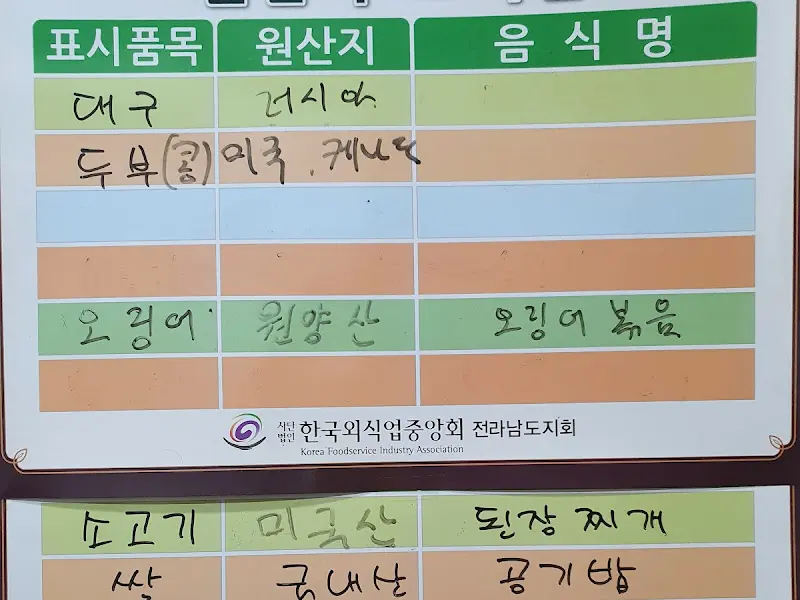 표시품목 원산지 음식명
대구 러시아
두부(콩) 미국. 케나다
오징어 원양산 오징어 볶음
사단법인 한국외식업중앙회 전라남도지회
Korea Foodservice Industry Association
소고기 미국산 된장찌개
쌀 국내산 공기밥